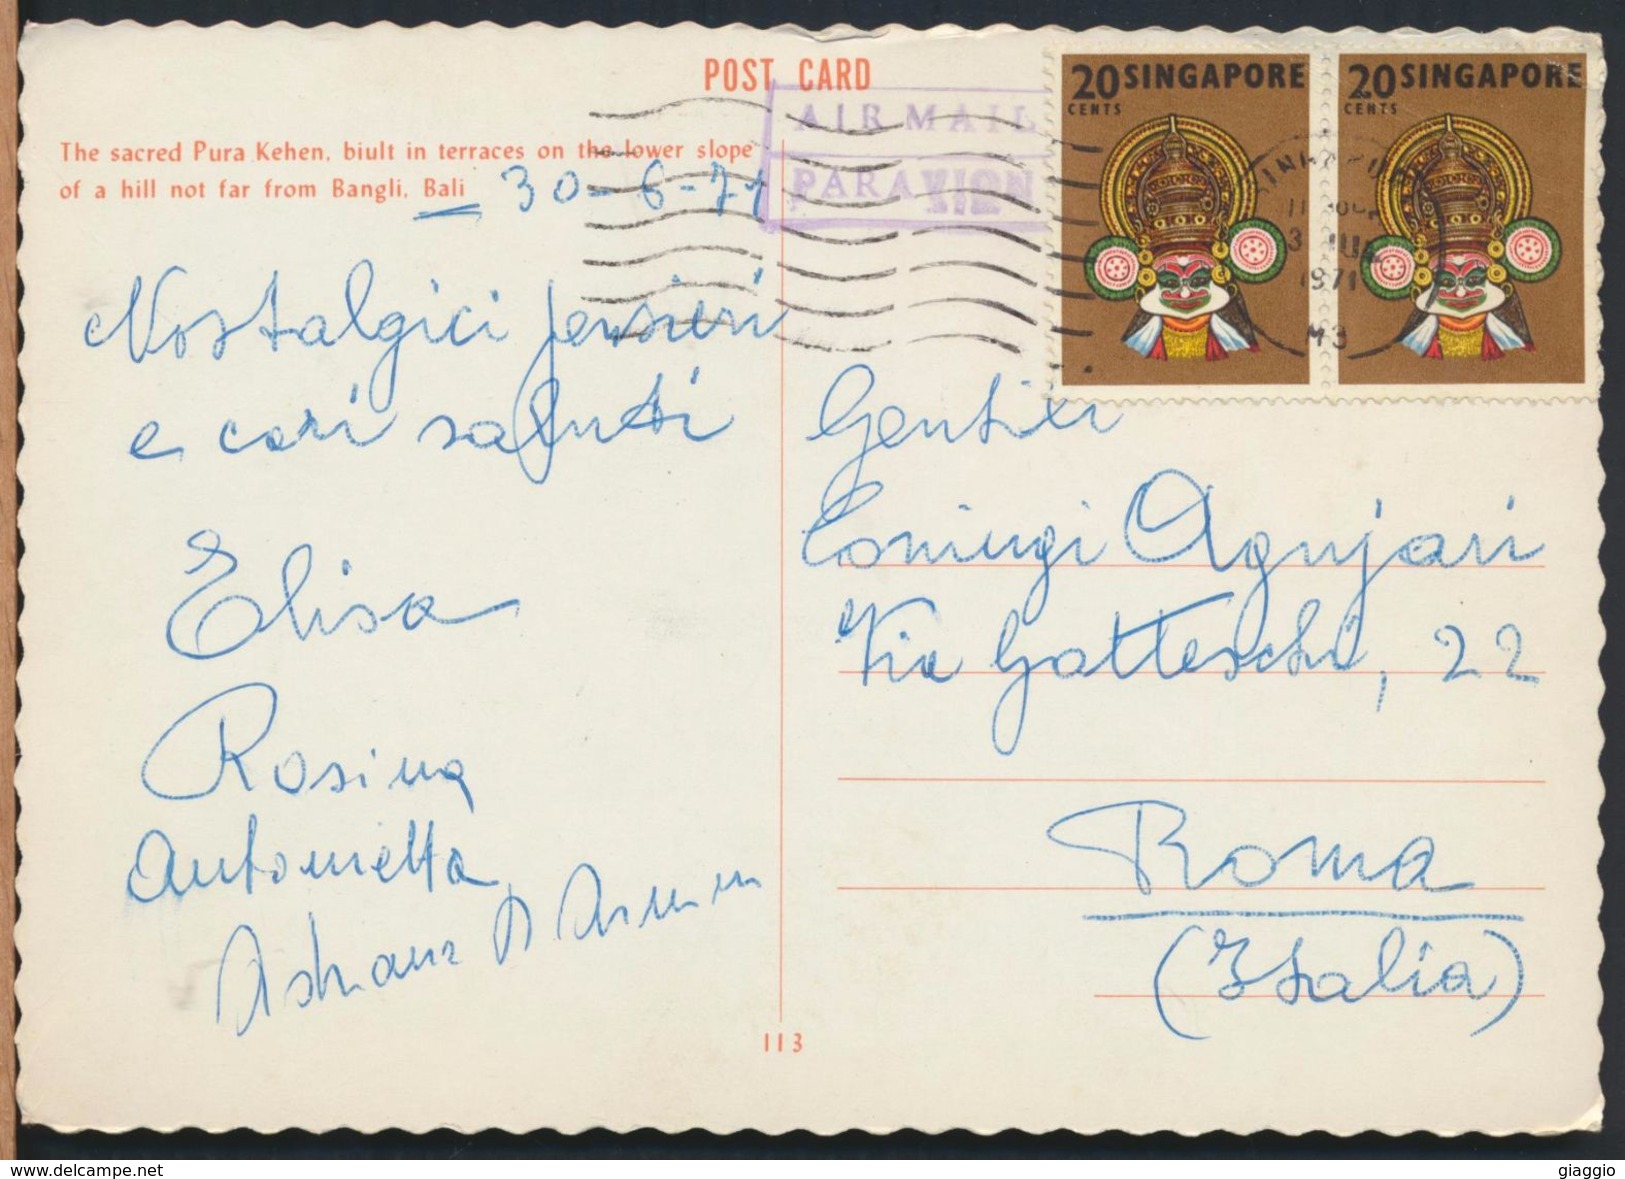 POST CARD
AIR MAIL
PAR AVION
20 SINGAPORE
CENTS
20 SINGAPORE
CENTS
3 JUL
1971
The sacred Pura Kehen, biult in terraces on the lower slope
of a hill not far from Bangli, Bali
30-6-71
Nostalgici pensieri
e cari saluti
Elisa
Rosina
Antonietta
Gentili
Coniugi Agujari
Via Gatteschi, 22
Roma
(Italia)
113
www.delcampe.net
giaggio